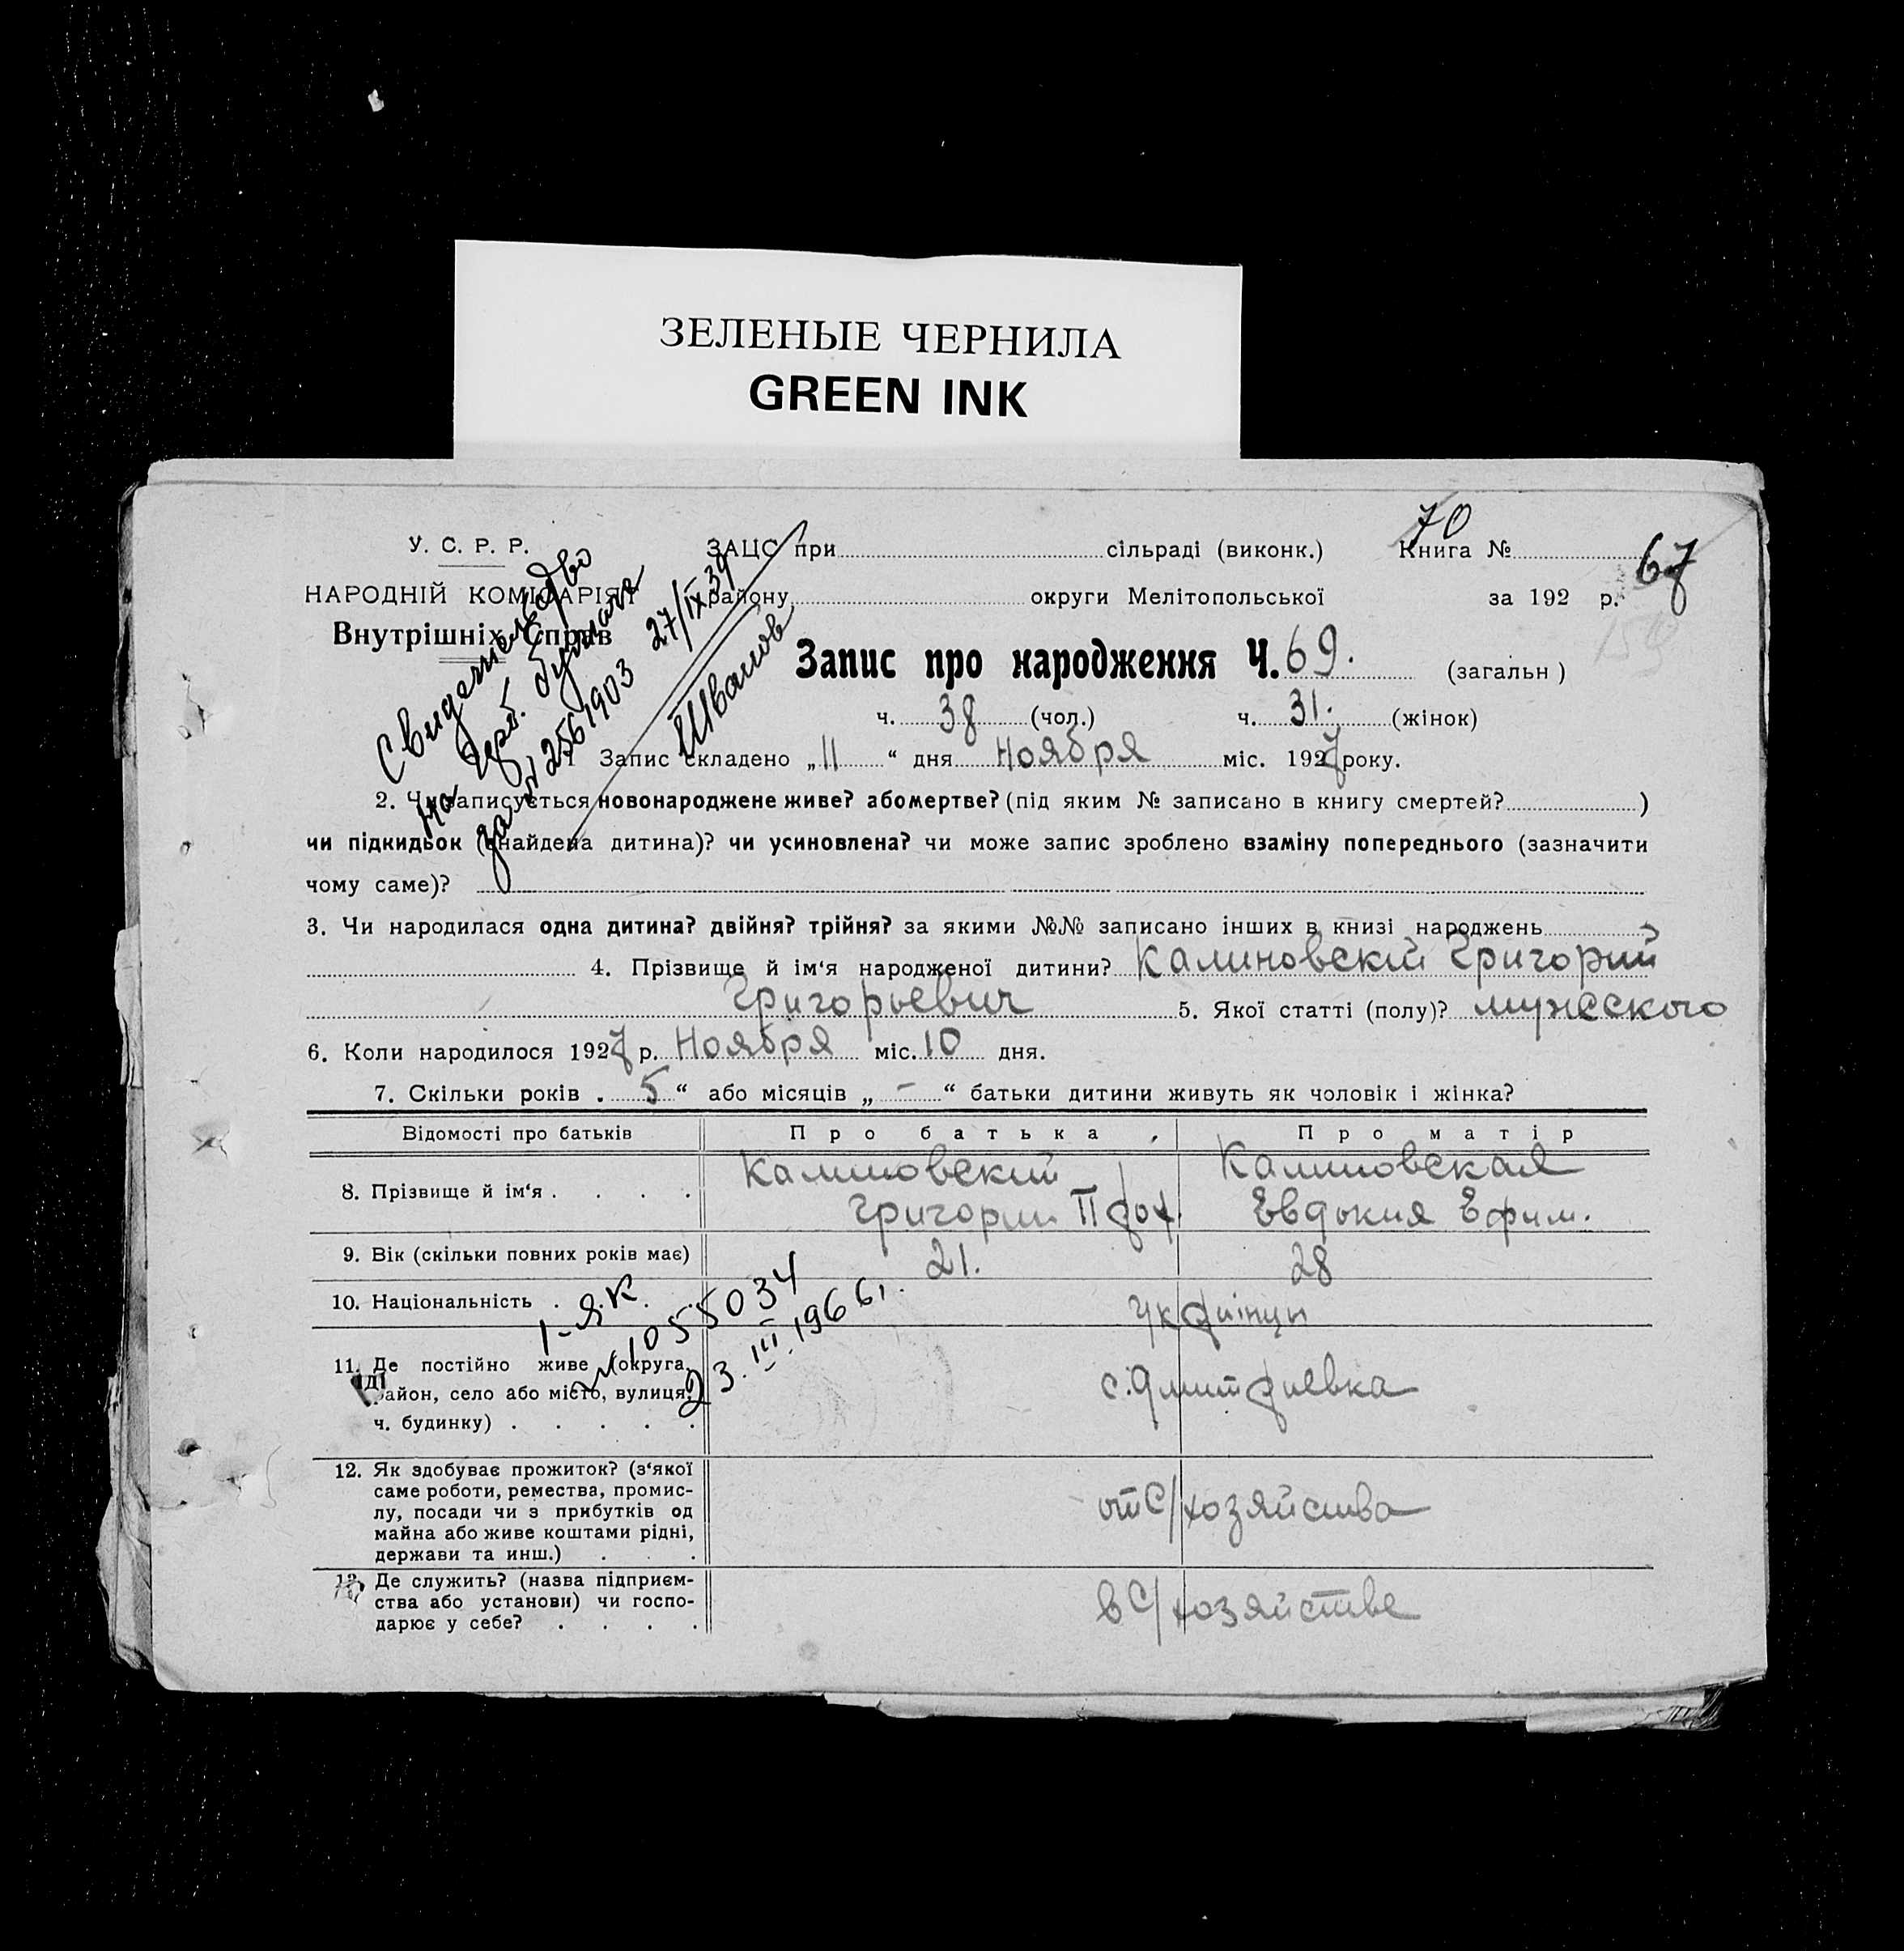 ЗЕЛЕНЫЕ ЧЕРНИЛА
GREEN INK
70
У. С. Р. Р. ЗАЦС при сільраді (виконк.) Книга №
67
НАРОДНІЙ КОМІСАРІЯТ району округи Мелітопольської за 192 р.
Внутрішніх Справ
Свидетельство
на герб. бумаге
за № 2561903 27/IX 39
Запис про народження Ч. 69. (загальн)
ч. 38 (чол.) ч. 31. (жінок)
Запис складено „11“ дня Ноября міс. 1927 року.
2. Чи записується новонароджене живе? або мертве? (під яким № записано в книгу смертей? )
чи підкидьок (знайдена дитина)? чи усиновлена? чи може запис зроблено взаміну попереднього (зазначити
чому саме)?
3. Чи народилася одна дитина? двійня? трійня? за якими №№ записано інших в книзі народжень
4. Прізвище й ім‘я народженої дитини? Калиновский Григорий
Григорьевич 5. Якої статті (полу)? мужеского
6. Коли народилося 1927 р. Ноября міс. 10 дня.
7. Скільки років . 5 “ або місяців „ – “ батьки дитини живуть як чоловік і жінка?
Відомості про батьків Про батька, Про матір
8. Прізвище й ім‘я . . . . Калиновский Калиновская
Григорий Евдокия Ефим.
9. Вік (скільки повних років має) 21. 28
10. Національність . Украінцы
1-Я.К.
№ 1055034
23.III.1966г.
11. Де постійно живе (округа,
район, село або місто, вулиця,
ч. будинку) . . . . .
с. Дмитриевка
12. Як здобуває прожиток? (з‘якої
саме роботи, ремества, промис-
лу, посади чи з прибутків од
майна або живе коштами рідні,
держави та инш.) . . .
от С/хозяйства
13. Де служить? (назва підприєм-
ства або установи) чи госпо-
дарює у себе? . . . .
в С/хозяйстве